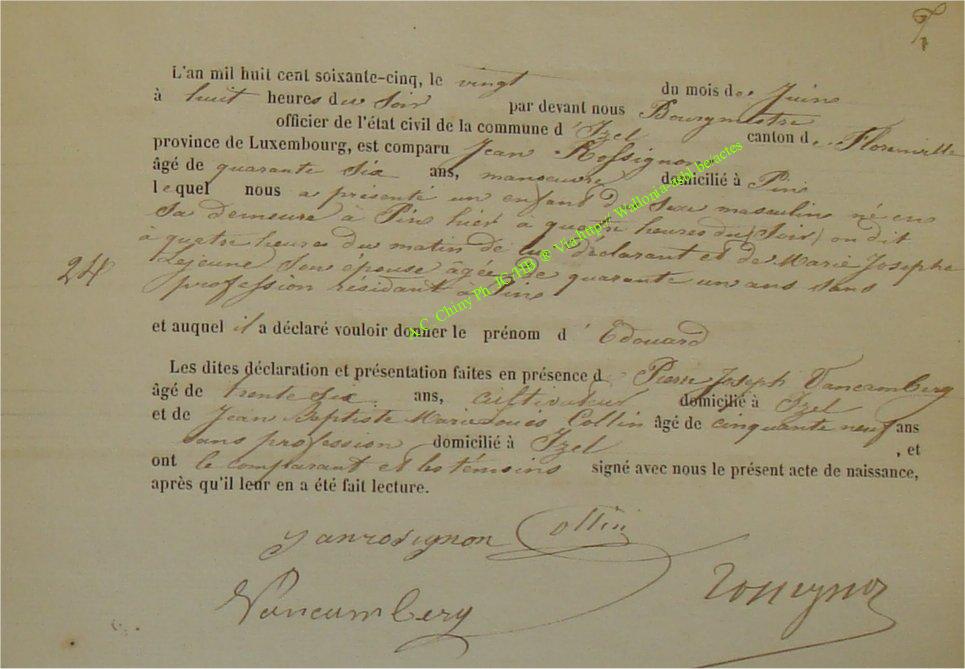 L'an mil huit cent soixante-cinq, le vingt du mois de Juin
à huit heures du Soir par devant nous Bourgmestre
officier de l'état civil de la commune d'Izel canton de Florenville
province de Luxembourg, est comparu Jean Rossignon
âgé de quarante six ans, manoeuvre domicilié à Pin
lequel nous a présenté un enfant du Sexe masculin né en
sa demeure à Pin hier à quatre heures du (Soir) on dit
à quatre heures du matin de lui déclarant et de Marie Josephe
Lejeune Son épouse âgée de quarante un ans sans
profession résidant à Pin
24
et auquel il a déclaré vouloir donner le prénom d'Edouard
Les dites déclaration et présentation faites en présence de Pierre Joseph Vancamberg
âgé de trente six ans, cultivateur domicilié à Izel
et de Jean Baptiste Marie Louis Collin âgé de cinquante neuf ans
sans profession domicilié à Izel , et
ont le comparant et les témoins signé avec nous le présent acte de naissance,
après qu'il leur en a été fait lecture.
Janrosignon Collin
Vancamberg Rossignon
A.C. Chiny Ph. JC/HB @ Via http// Wallonia-asbl.be-actes